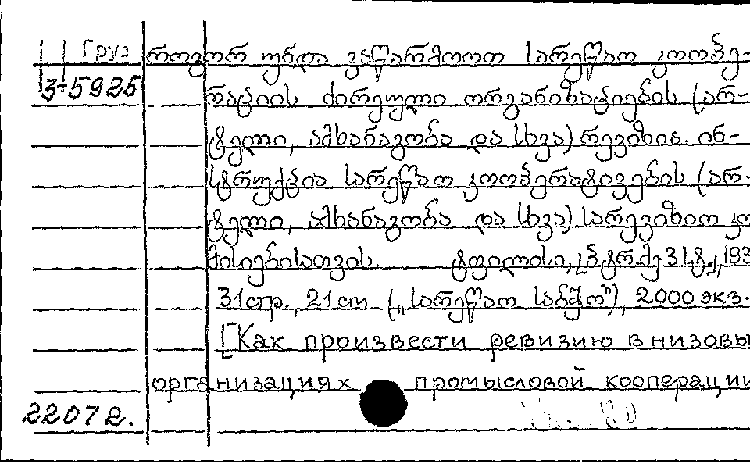 Груз როგორ უნდა ვაწარმოოთ სარეწაო კოოპე-
3-5925 რაციის ძირეული ორგანიზაციების (არ-
ტელი, ამხანაგობა და სხვა) რევიზია. ინ-
სტრუქცია სარეწაო კოოპერატივების (არ-
ტელი, ამხანაგობა და სხვა) სარევიზიო კო
მისიებისათვის. ტფილისი, 193
31 стр., 21 см. („სარეწაო საბჭო"), 2000 экз.
[Как произвести ревизию в низовы
организациях промысловой кооперации
22072.